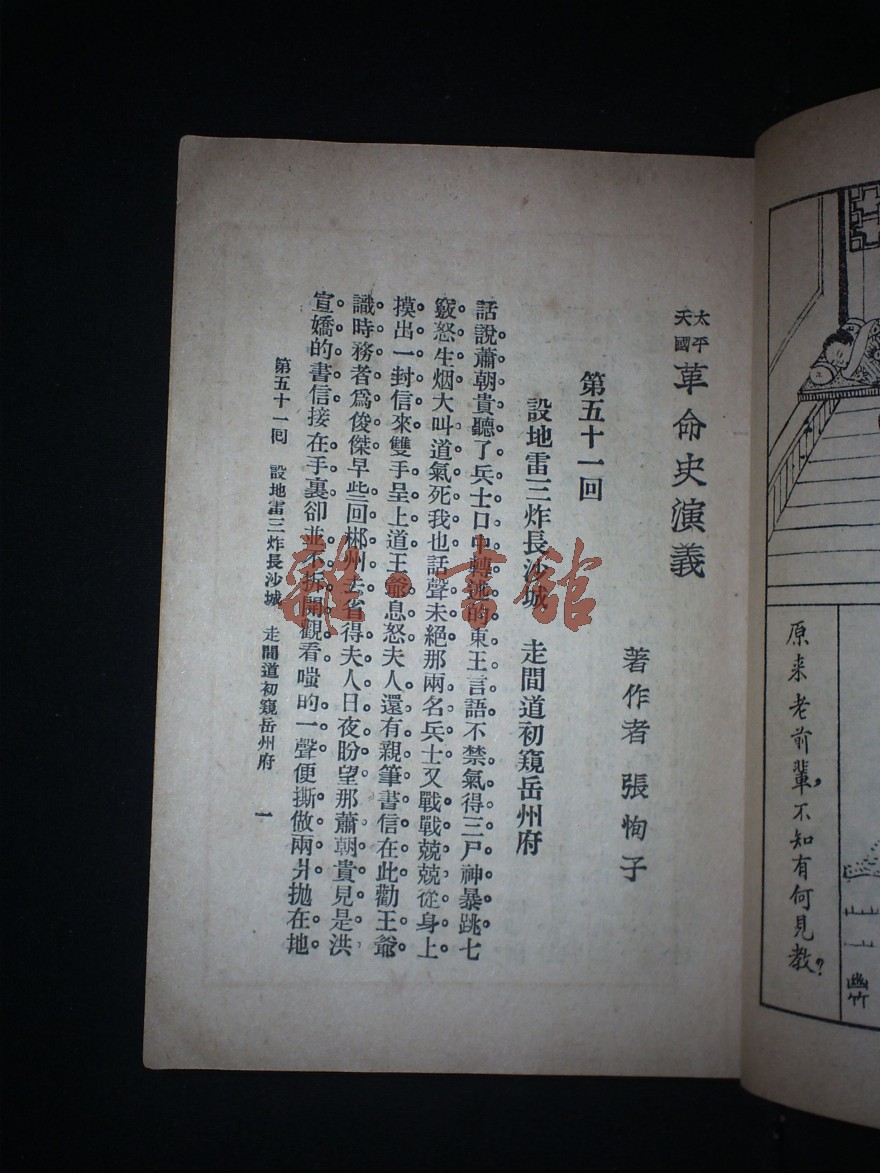 原来老前輩，不知有何見教？
太平天國革命史演義
著作者 張恂子
第五十一回
設地雷三炸長沙城 走間道初窺岳州府
話說蕭朝貴聽了兵士口中轉述的東王言語不禁氣得三尸神暴跳七
竅怒生烟大叫道氣死我也話聲未絕那兩名兵士又戰戰兢兢從身上
摸出一封信來雙手呈上道王爺息怒夫人還有親筆書信在此勸王爺
識時務者爲俊傑早些回郴州去省得夫人日夜盼望那蕭朝貴見是洪
宣嬌的書信接在手裏卻並不拆開觀看嗤的一聲便撕做兩爿拋在地
第五十一回 設地雷三炸長沙城 走間道初窺岳州府 一
雜·書館